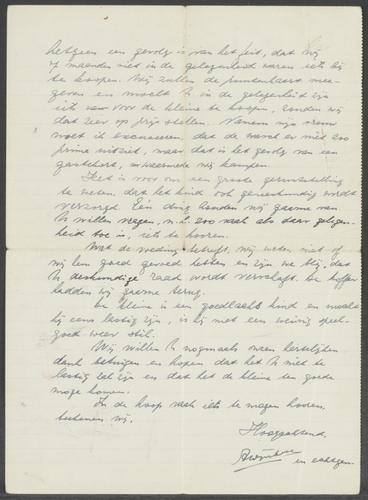 hetgeen een gevolg is van het feit, dat wij
4 maanden niet in de gelegenheid waren iets bij
te koopen. Wij zullen de puntenkaart mee-
geven en mocht U in de gelegenheid zijn
iets voor de kleine te koopen, zouden wij
dat zeer op prijs stellen. Namens mijn vrouw
moet ik excuseeren dat de wasch er niet zoo
prima uitziet, maar dat is het gevolg van een
gastekort, waarmede wij kampen.
Het is voor ons een groote geruststelling
te weten, dat het kind ook geneeskundig wordt
verzorgd. Één ding zouden wij gaarne van
U willen vragen, n.l. zoo vaak als daar gelegen-
heid toe is, iets te hooren.
Wat de voeding betreft, wij weten niet of
wij hem goed gevoed hebben en zijn we blij, dat
U deskundige raad wordt verschaft. De koffer
hadden wij gaarne terug.
De kleine is een goedlachs kind en mocht
hij eens lastig zijn, is hij met een weinig speel-
goed weer stil.
Wij willen U nogmaals onzen hartelijken
dank betuigen en hopen dat het U niet te
lastig zal zijn en dat het de kleine ten goede
moge komen.
In de hoop vaak iets te mogen hooren,
teekenen wij,
Hoogachtend,
en echtgen.